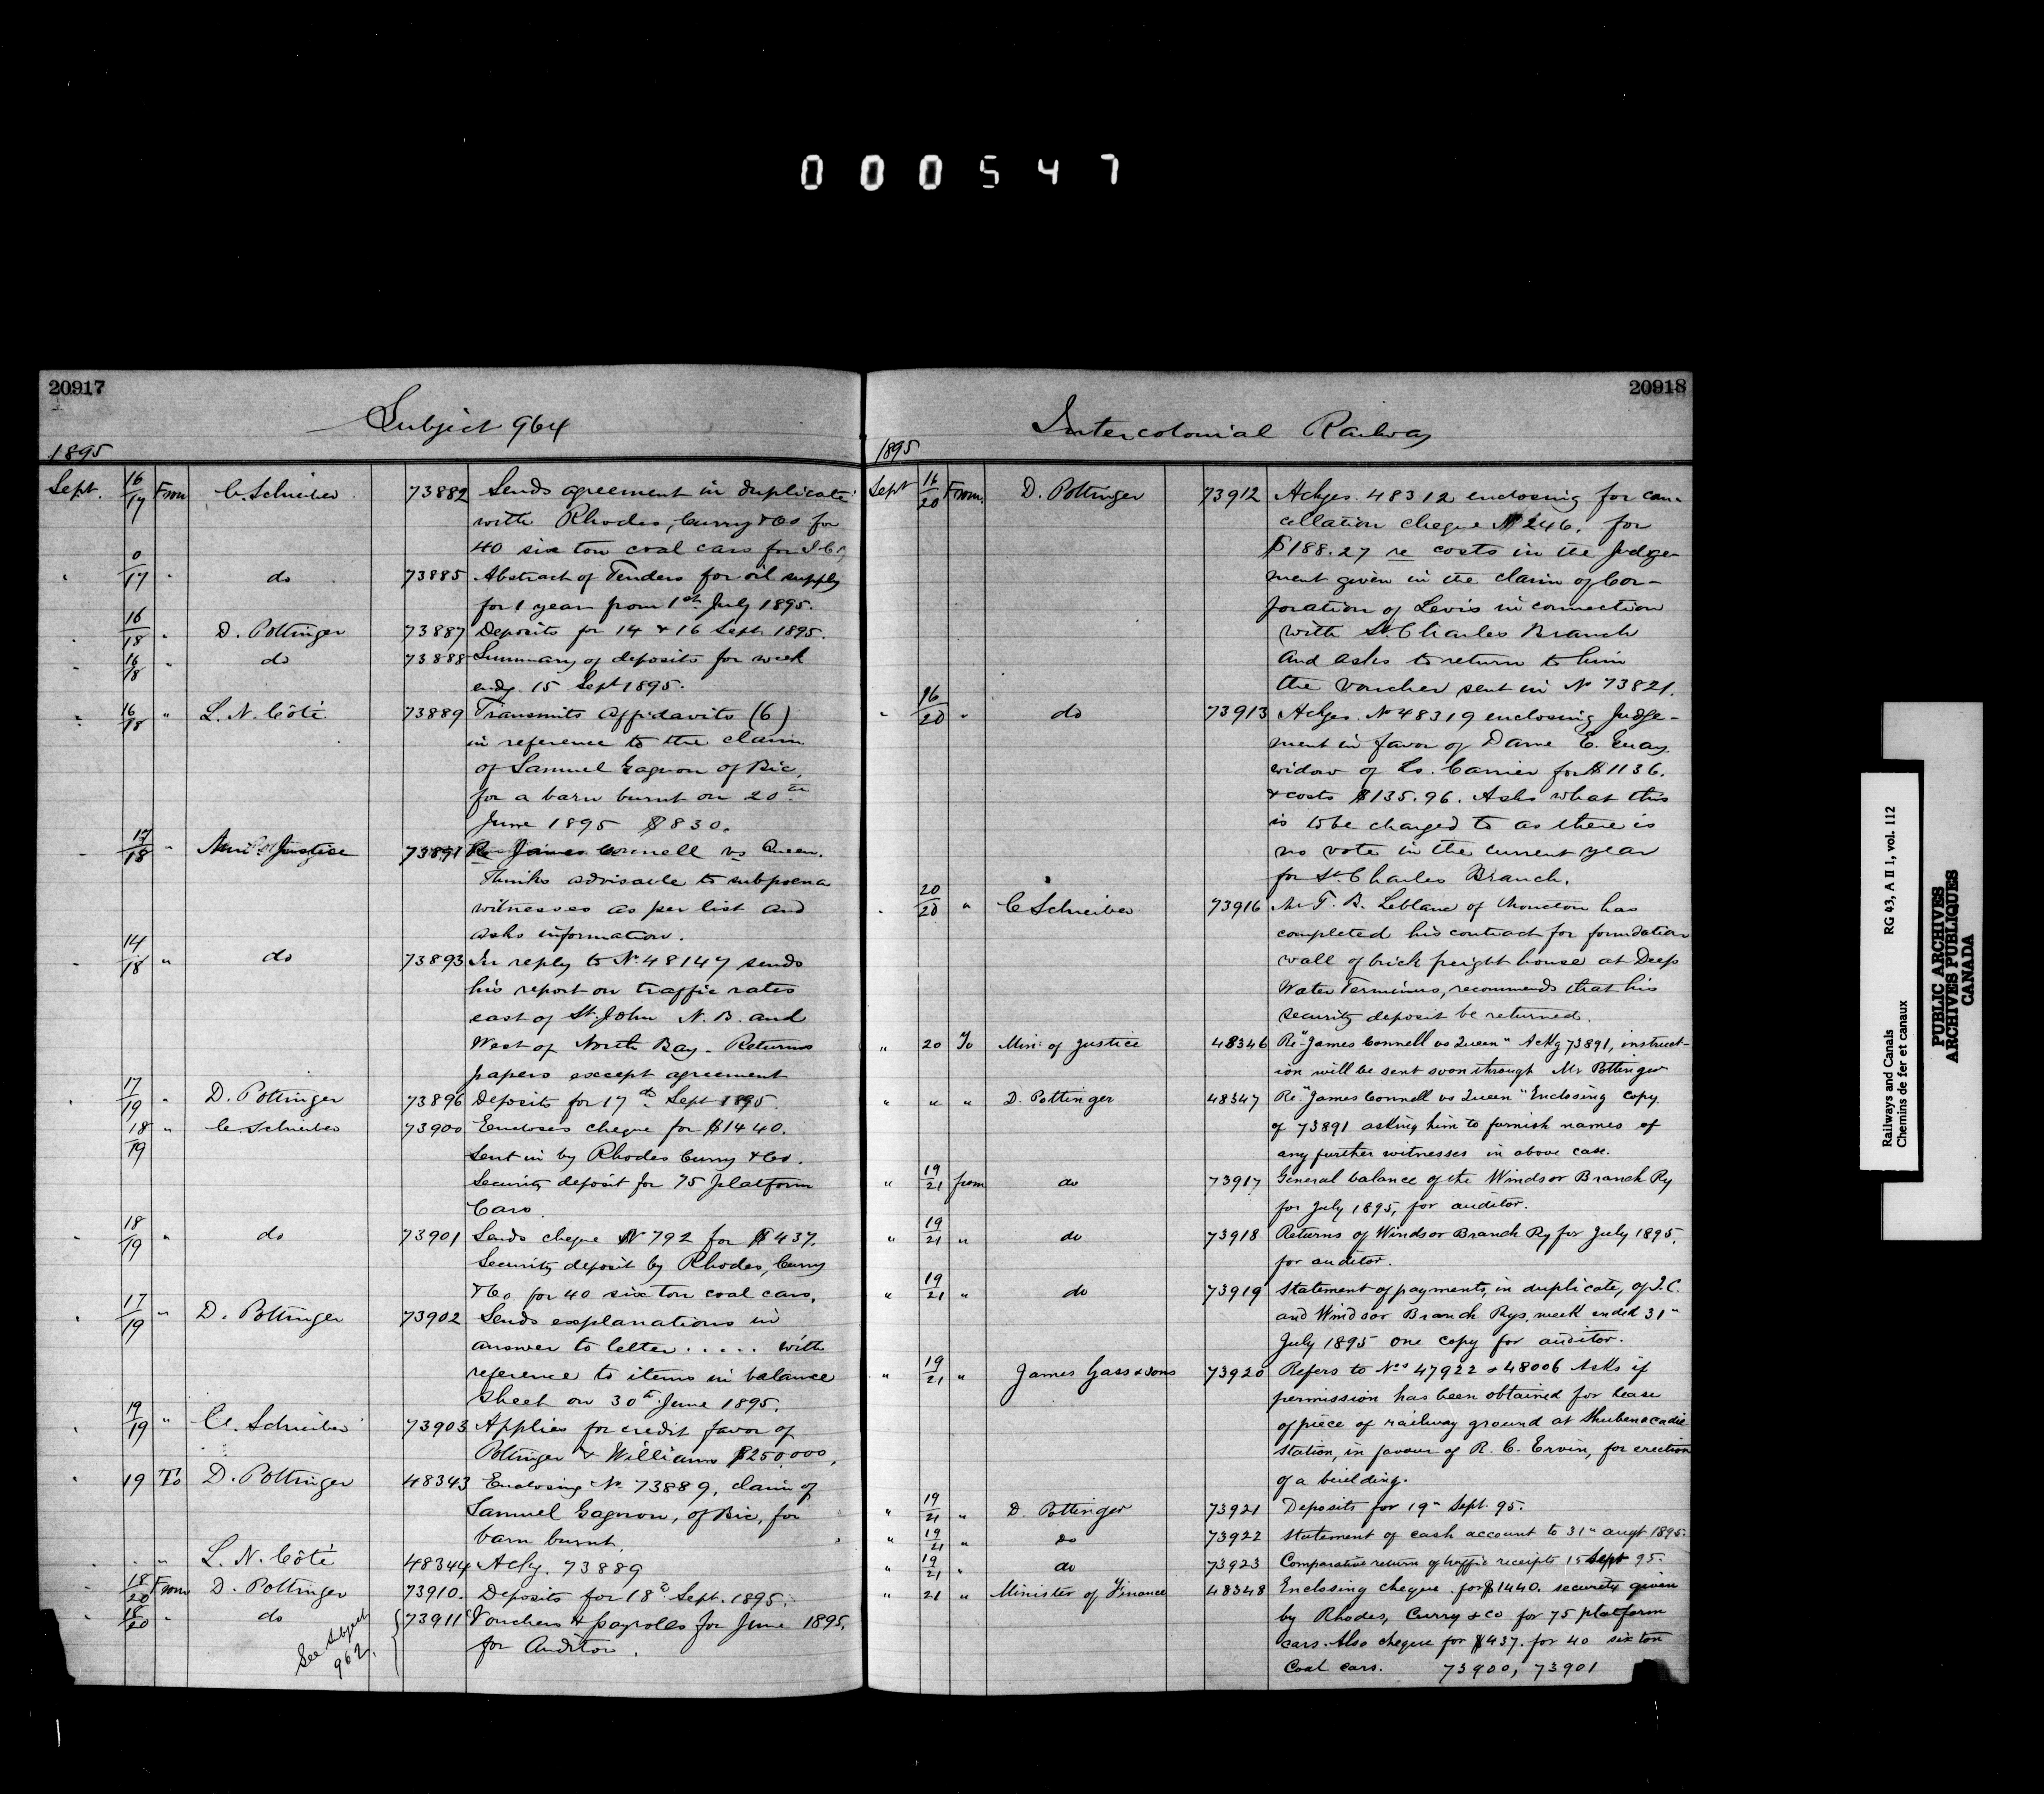 000547
20917
Subject 964
1895
Sept. 16/17 From C. Schreiber 73882 Sends agreement in duplicate
with Rhodes, Curry & Co for
40 six ton coal cars for I.C.
" 0/17 " do 73885 Abstract of Tenders for oil supply
for 1 year from 1st July 1895.
" 16/18 " D. Pottinger 73887 Deposits for 14 & 16 Sept. 1895.
" 16/18 " do 73888 Summary of deposits for week
endg. 15 Sept 1895.
" 16/18 " L. N. Côté 73889 Transmits affidavits (6)
in reference to the claim
of Samuel Gagnon of Bic,
for a barn burnt on 20th
June 1895 $830.
" 17/18 " Min. of Justice 73891 Re James Connell vs Queen.
Thinks advisable to subpoena
witnesses as per list and
asks information.
" 14/18 " do 73893 In reply to No. 48147 sends
his report on traffic rates
east of St. John N. B. and
West of North Bay. Returns
papers except agreement
" 17/19 " D. Pottinger 73896 Deposits for 17th Sept 1895.
" 18/19 " C. Schreiber 73900 Encloses cheque for $1440.
Sent in by Rhodes Curry & Co.
Security deposit for 75 platform
Cars.
" 18/19 " do 73901 Sends cheque No 792 for $437.
Security deposit by Rhodes, Curry
& Co. for 40 six ton coal cars.
" 17/19 " D. Pottinger 73902 Sends explanations in
answer to letter ..... with
reference to items in balance
sheet on 30th June 1895.
" 19/19 " C. Schreiber 73903 Applies for credit favor of
Pottinger & Williams $250,000.
" 19 To D. Pottinger 48343 Enclosing No 73889, claim of
Samuel Gagnon, of Bic, for
barn burnt.
" " " L. N. Côté 48344 Ackg. 73889
" 18/20 From D. Pottinger 73910. Deposits for 18th Sept. 1895.
" 18/20 " do 73911 Vouchers & payrolls for June 1895,
for Auditor.
See Subject
962.
20918
Intercolonial Railway
1895
Sept 16/20 From. D. Pottinger 73912 Ackges. 48312 enclosing for can-
cellation cheque No 246. for
$188.27 re costs in the Judge-
ment given in the claim of Cor-
poration of Levis in connection
with St. Charles Branch
And asks to return to him
the voucher sent in No 73821.
" 16/20 " do 73913 Ackges. No 48319 enclosing Judge-
ment in favor of Dame E.
widow of Ls. Carrier for $1136.
& costs $135.96. Asks what this
is to be charged to as there is
no vote in the current year
for St. Charles Branch.
" 20/20 " C Schreiber 73916 Mr T. B. Leblanc of Moncton has
completed his contract for foundation
wall of brick freight house at Deep
Water Terminus, recommends that his
security deposit be returned.
" 20 To Min. of Justice 48346 Re "James Connell vs Queen" Ackg 73891, instruct-
ion will be sent soon through Mr Pottinger
" " " D. Pottinger 48347 Re "James Connell vs Queen" Enclosing copy
of 73891 asking him to furnish names of
any further witnesses in above case.
" 19/21 from do 73917 General balance of the Windsor Branch Ry
for July 1895, for auditor.
" 19/21 " do 73918 Returns of Windsor Branch Ry for July 1895,
for auditor.
" 19/21 " do 73919 Statement of payments, in duplicate, of I.C.
and Windsor Branch Rys, week ended 31"
July 1895 one copy for auditor.
" 19/21 " James Gass & Sons 73920 Refers to Nos 47922 & 48006 Asks if
permission has been obtained for lease
of piece of railway ground at Shubenacadie
station, in favour of R. C. Ervin, for erection
of a building.
" 19/21 " D. Pottinger 73921 Deposits for 19" Sept. 95.
" 19/21 " do 73922 Statement of cash account to 31" augt 1895.
" 19/21 " do 73923 Comparative return of traffic receipts 15 Sept 95.
" 21 " Minister of Finance 48348 Enclosing cheque for $1440. security given
by Rhodes, Curry & Co for 75 platform
cars. Also cheque for $437. for 40 six ton
Coal cars. 73900, 73901
Railways and Canals RG 43, A II 1, vol. 112
Chemins de fer et canaux
PUBLIC ARCHIVES
ARCHIVES PUBLIQUES
CANADA